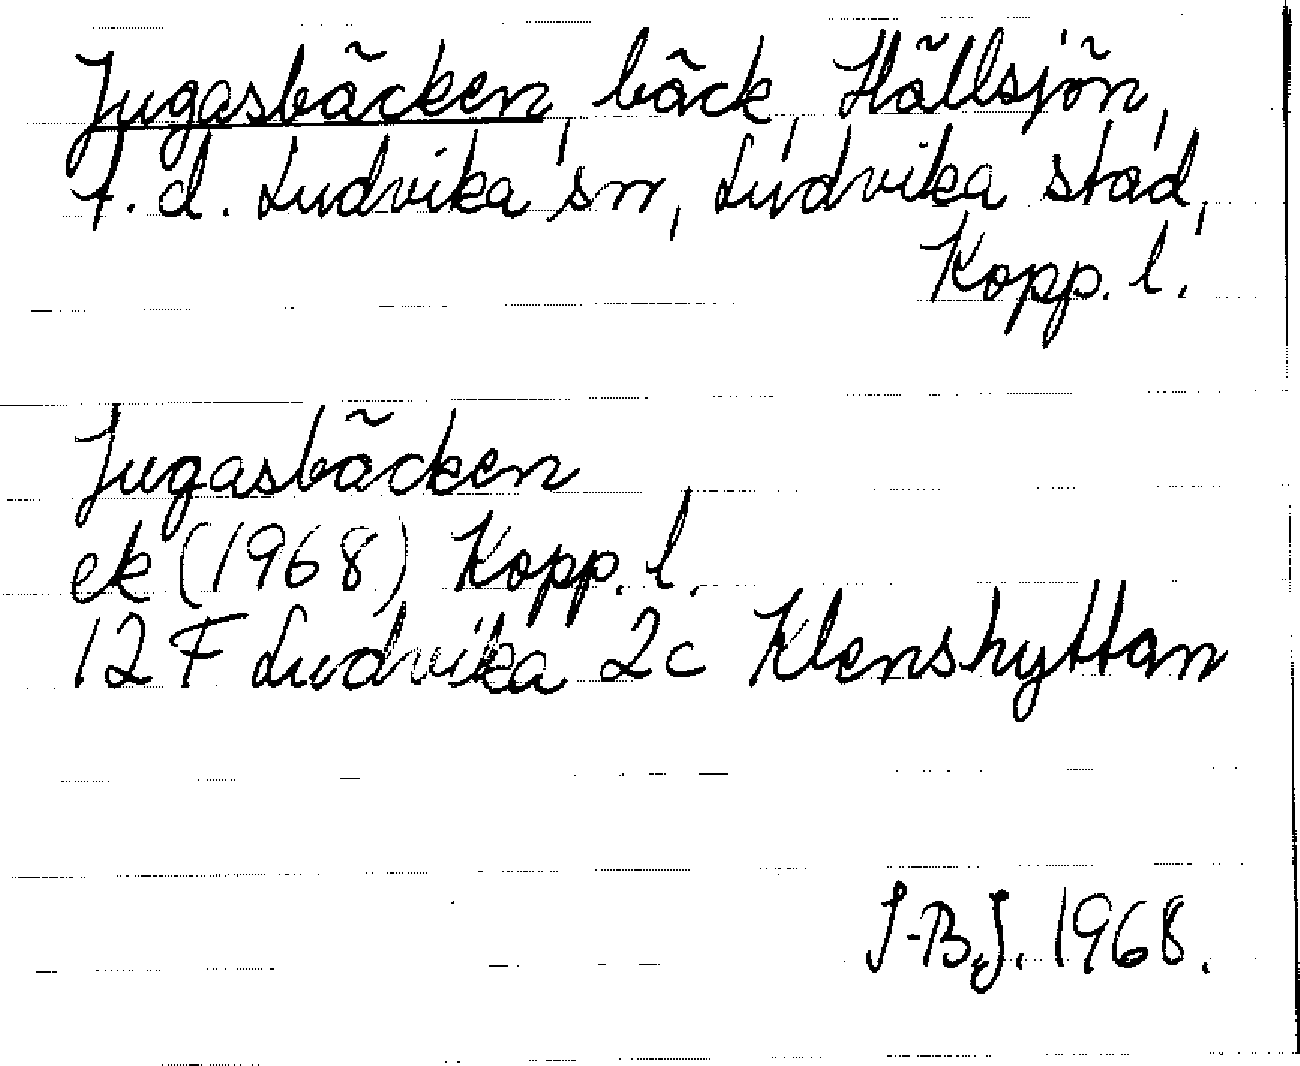 Jugasbäcken, bäck, Hällsjön,
f. d. Ludvika sn, Ludvika stad,
Kopp. l.
Jugasbäcken
ek (1968) Kopp. l.
12 F Ludvika 2c Klenshyttan
I-B.J. 1968.